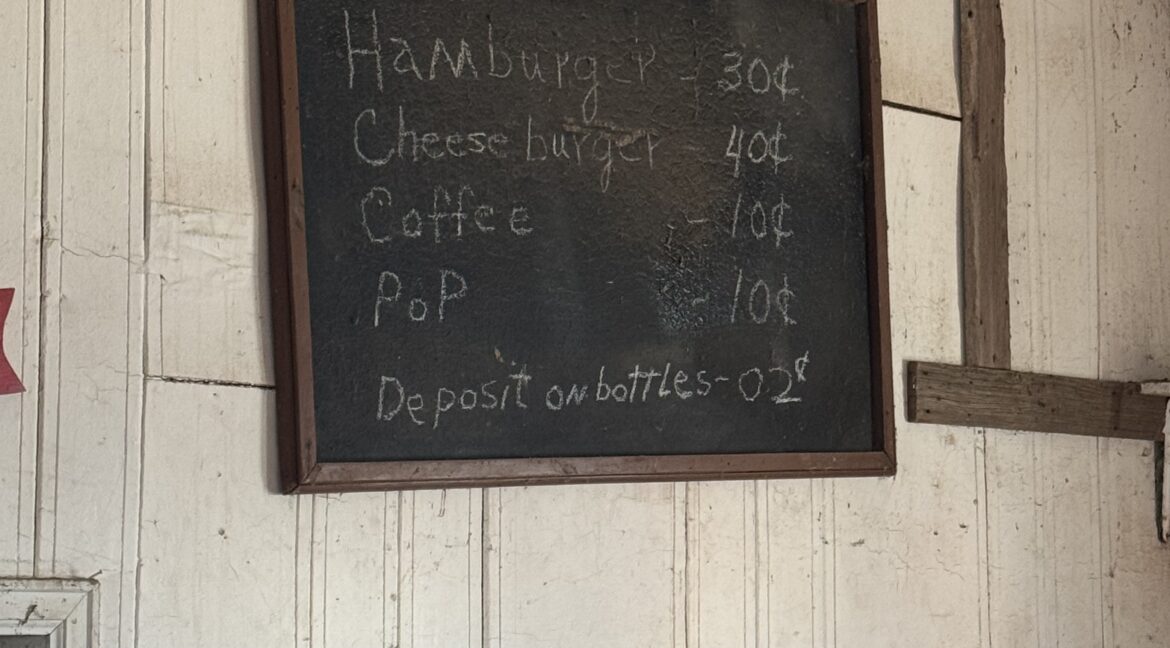 Hamburger - 30¢
Cheeseburger 40¢
Coffee - 10¢
PoP - 10¢
Deposit on bottles - 02¢